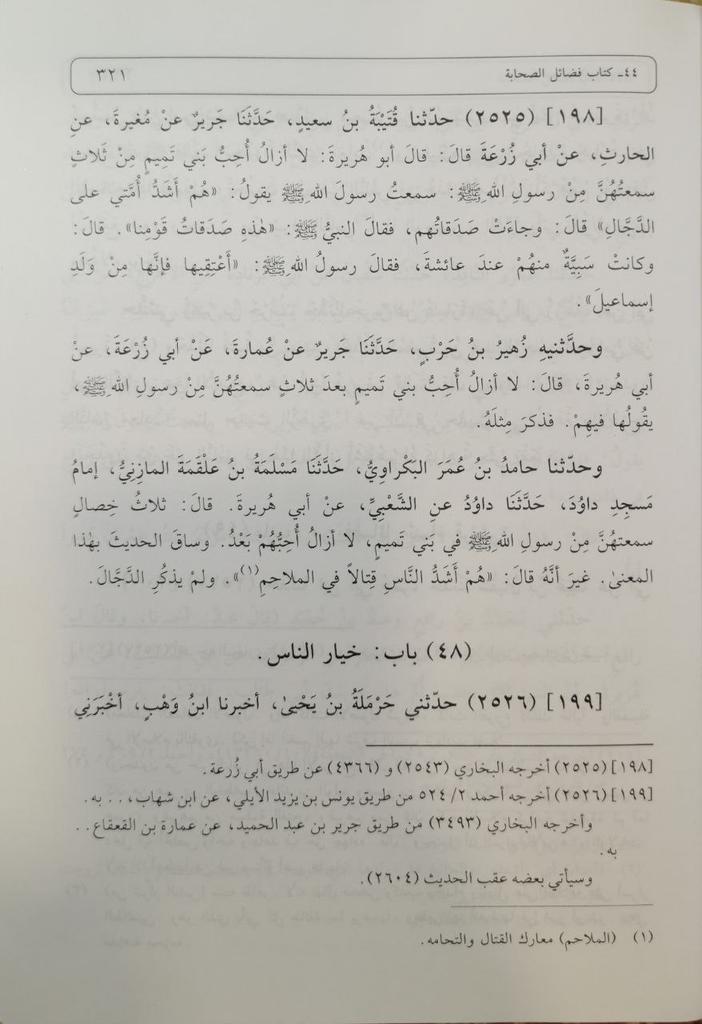 ٤٤ـ كتاب فضائل الصحابة
٣٢١
[١٩٨] (٢٥٢٥) حدّثنا قُتَيْبَةُ بنُ سعيدٍ، حَدَّثَنَا جَريرٌ عنْ مُغيرةَ، عنِ
الحارثِ، عنْ أبي زُرْعَةَ قالَ: قالَ أبو هُريرةَ: لا أزالُ أُحِبُّ بَني تَميمٍ مِنْ ثَلاثٍ
سمعتُهُنَّ مِنْ رسولِ اللهِ ﷺ: سمعتُ رسولَ اللهِ ﷺ يقولُ: «هُمْ أَشَدُّ أُمَّتي على
الدَّجَّالِ» قالَ: وجاءَتْ صَدَقاتُهم، فقالَ النبيُّ ﷺ: «هٰذهِ صَدَقاتُ قَوْمِنا». قالَ:
وكانَتْ سَبِيَّةٌ منهُمْ عندَ عائشةَ، فقالَ رسولُ اللهِ ﷺ: «أَعْتِقِيها فإنَّها مِنْ وَلَدِ
إسماعيلَ».
وحدَّثنيهِ زُهيرُ بنُ حَرْبٍ، حَدَّثَنَا جَريرٌ عنْ عُمارةَ، عَنْ أبي زُرْعَةَ، عنْ
أبي هُريرةَ، قالَ: لا أزالُ أُحِبُّ بني تَميمٍ بعدَ ثلاثٍ سمعتُهُنَّ مِنْ رسولِ اللهِ ﷺ،
يقُولُها فيهِمْ. فذكرَ مِثلَهُ.
وحدّثنا حامدُ بنُ عُمَرَ البَكْراوِيُّ، حَدَّثَنَا مَسْلَمَةُ بنُ عَلْقَمَةَ المازِنِيُّ، إمامُ
مَسجِدِ داوُدَ، حَدَّثَنَا داوُدُ عنِ الشَّعْبِيِّ، عنْ أبي هُريرةَ. قالَ: ثلاثُ خِصالٍ
سمعتهُنَّ مِنْ رسولِ اللهِ ﷺ في بَني تَميمٍ، لا أزالُ أُحِبُّهُمْ بَعْدُ. وساقَ الحديثَ بهٰذا
المعنىٰ. غيرَ أنَّهُ قالَ: «هُمْ أَشَدُّ النَّاسِ قِتالاً في الملاحِمِ(١)». ولمْ يذكُرِ الدَّجَّالَ.
(٤٨) باب: خيار الناس.
[١٩٩] (٢٥٢٦) حدّثني حَرْمَلَةُ بنُ يَحْيىٰ، أخبرنا ابنُ وَهْبٍ، أَخْبَرَنِي
[١٩٨] (٢٥٢٥) أخرجه البخاري (٢٥٤٣) و (٤٣٦٦) عن طريق أبي زُرعة.
[١٩٩] (٢٥٢٦) أخرجه أحمد ٢/ ٥٢٤ من طريق يونس بن يزيد الأيلي، عن ابن شهاب، . . به.
وأخرجه البخاري (٣٤٩٣) من طريق جرير بن عبد الحميد، عن عمارة بن القعقاع . .
به.
وسيأتي بعضه عقب الحديث (٢٦٠٤).
(١) (الملاحم) معارك القتال والتحامه.